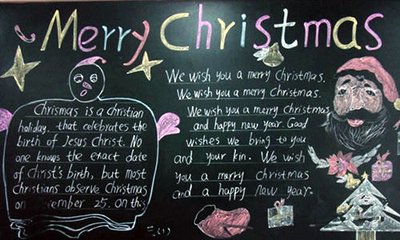 Merry Christmas
Chrismas is a christian
holiday. that celebrates the
birth of Jesus Christ. No
one knows the exact date
of Christ's birth, but most
christians observe Christmas
on ember 25. on this
We wish you a merry Christmas.
We wish you a merry Christmas.
We wish you a merry christmas
and happy new year. Good
wishes we bring to you
and your kin. We wish
you a merry christmas
and a happy new year.